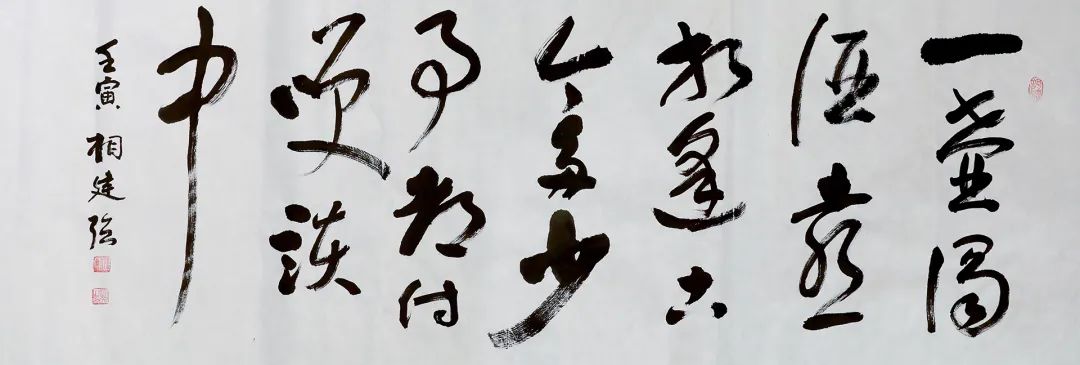 一壶浊
酒喜
相逢古
今多少
事都付
笑谈
中
壬寅 相建强